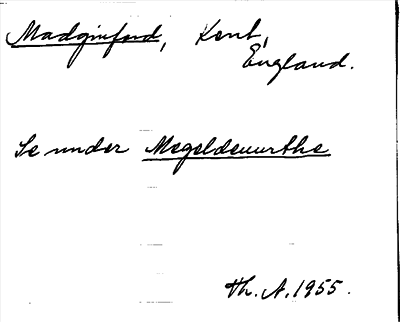 Madginford, Kent,
England.
Se under Megeldeuurthe
Th. A. 1955.